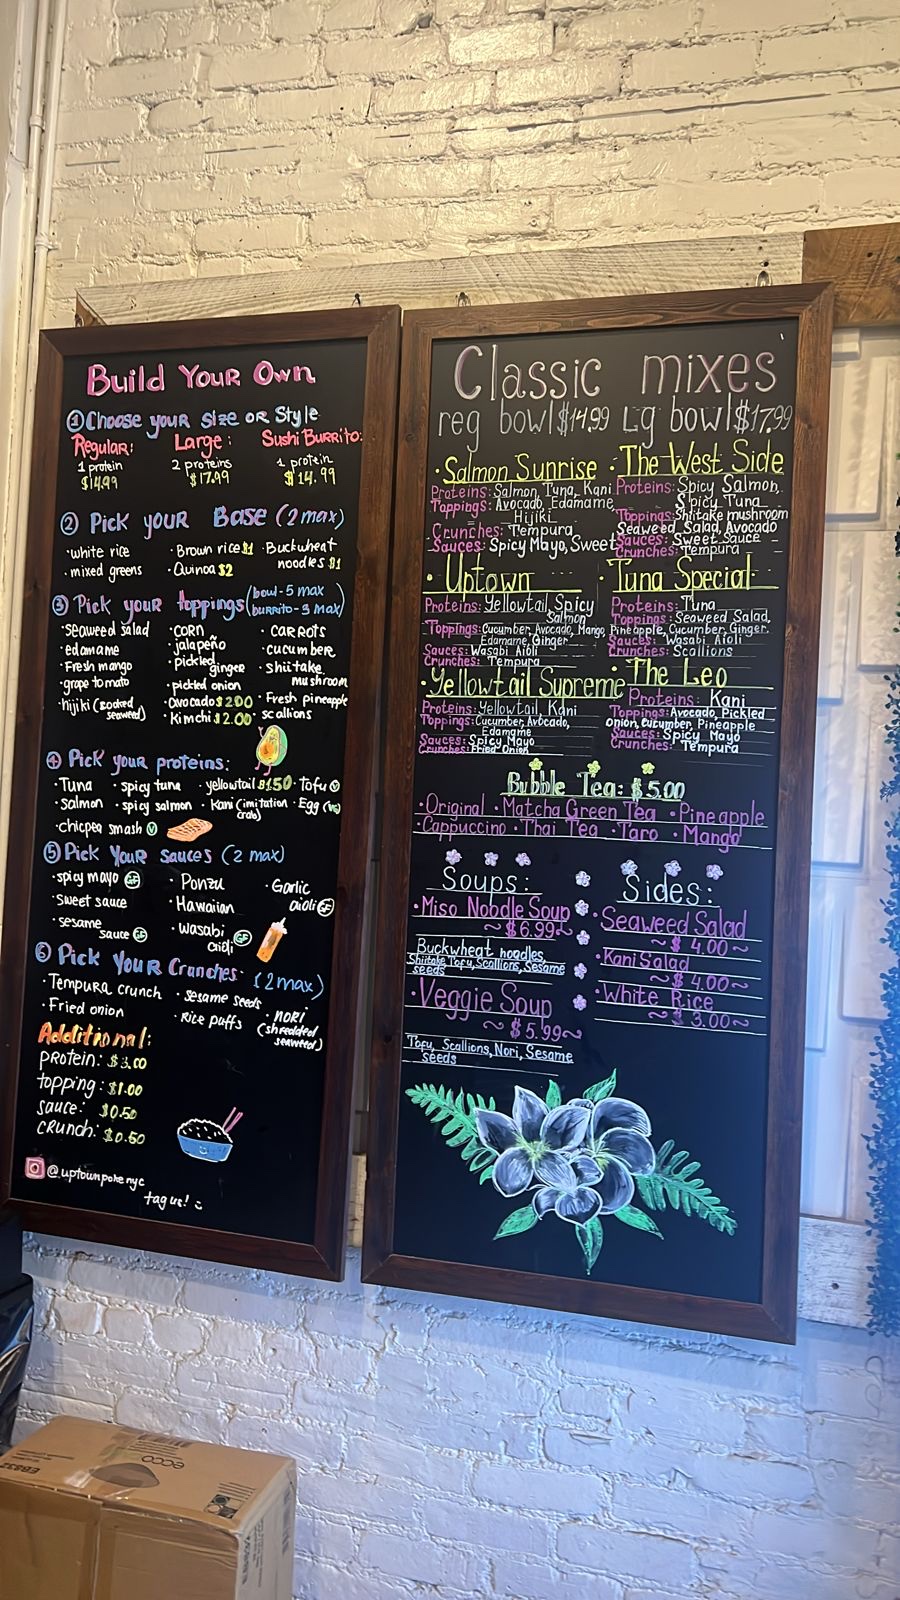 Build Your Own
① Choose your size or Style
Regular: Large: Sushi Burrito:
1 protein 2 proteins 1 protein
$14.99 $17.99 $14.99
② Pick your Base (2 max)
·white rice ·Brown rice $1 ·Buckwheat noodles $1
·mixed greens ·Quinoa $2
③ Pick your toppings (bowl-5 max burrito-3 max)
·seaweed salad ·corn ·carrots
·edamame ·jalapeño ·cucumber
·Fresh mango ·pickled ginger ·shiitake mushroom
·grape tomato ·pickled onion
·hijiki (cooked seaweed) ·Avocado $2.00 ·Fresh pineapple
·Kimchi $2.00 ·scallions
④ Pick your proteins:
·Tuna ·spicy tuna ·yellowtail $1.50 ·Tofu V
·salmon ·spicy salmon ·Kani (imitation crab) ·Egg (VG)
·chicpea smash V
⑤ Pick Your sauces (2 max)
·spicy mayo GF ·Ponzu ·Garlic aioli GF
·sweet sauce ·Hawaiian
·sesame sauce GF ·wasabi aioli GF
⑥ Pick Your Crunches (2 max)
·Tempura crunch ·sesame seeds ·nori (shredded seaweed)
·Fried onion ·Rice puffs
Additional:
protein: $3.00
topping: $1.00
sauce: $0.50
crunch: $0.50
@uptownpokenyc
tag us!
Classic mixes
reg bowl $14.99 Lg bowl $17.99
·Salmon Sunrise
Proteins: Salmon, Tuna, Kani
Toppings: Avocado, Edamame,
Hijiki
Crunches: Tempura
Sauces: Spicy Mayo, Sweet
·The West Side
Proteins: Spicy Salmon,
Spicy Tuna
Toppings: Shiitake mushroom
Seaweed Salad, Avocado
Sauces: Sweet Sauce
Crunches: Tempura
·Uptown
Proteins: Yellowtail, Spicy
Salmon
Toppings: Cucumber, Avocado, Mango,
Edamame, Ginger
Sauces: Wasabi Aioli
Crunches: Tempura
·Tuna Special
Proteins: Tuna
Toppings: Seaweed Salad,
Pineapple, Cucumber, Ginger.
Sauces: Wasabi Aioli
Crunches: Scallions
·Yellowtail Supreme
Proteins: Yellowtail, Kani
Toppings: Cucumber, Avocado,
Edamame
Sauces: Spicy Mayo
Crunches: Fried Onion
·The Leo
Proteins: Kani
Toppings: Avocado, Pickled
onion, Cucumber, Pineapple
Sauces: Spicy Mayo
Crunches: Tempura
Bubble Tea: $5.00
·Original ·Matcha Green Tea ·Pineapple
·Cappuccino ·Thai Tea ·Taro ·Mango
Soups:
·Miso Noodle Soup
~$6.99~
Buckwheat noodles,
Shiitake Tofu, Scallions, Sesame
seeds
·Veggie Soup
~$5.99~
Tofu, Scallions, Nori, Sesame
seeds
Sides:
·Seaweed Salad
~$4.00~
·Kani Salad
~$4.00~
·White Rice
~$3.00~
ecco